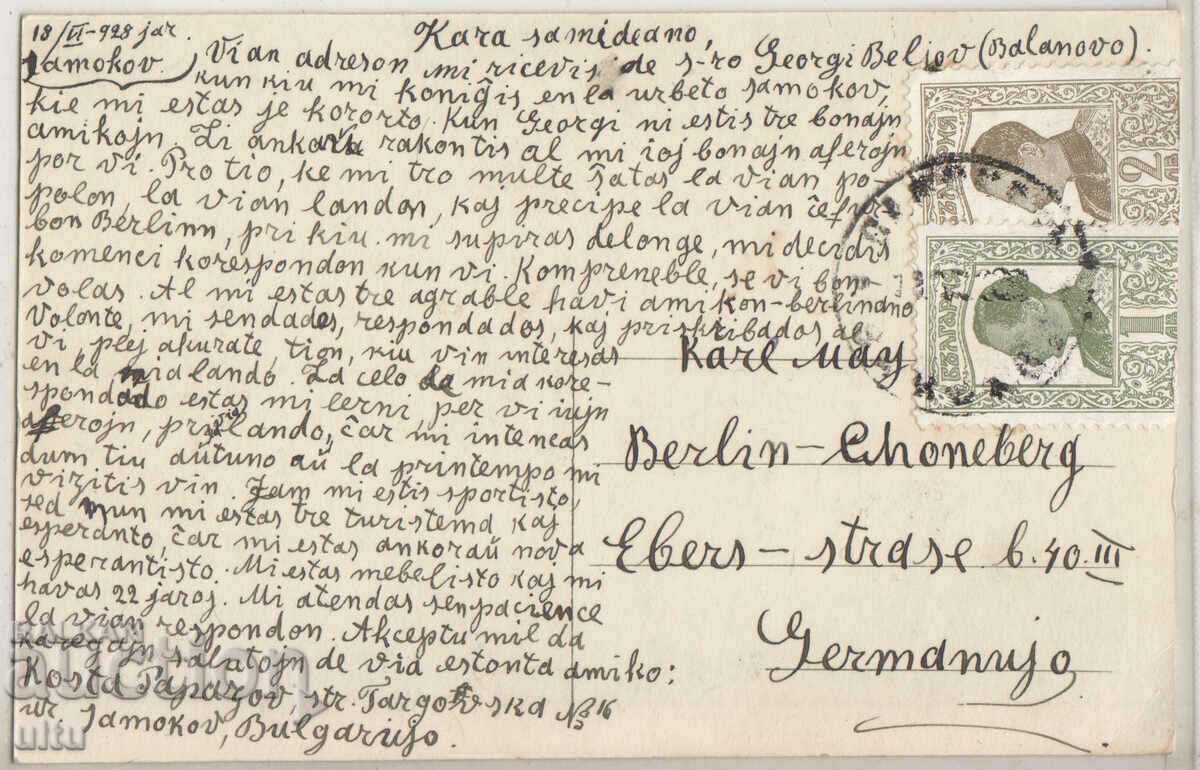 18/VI-928 jar.
Samokov.
Kara samideano,
Vian adreson mi ricevis de s-ro Georgi Beljov (Balanovo).
kun kiu mi koniĝis en la urbeto Samokov,
kie mi estas je kororto. Kun Georgi ni estis tre bonajn
amikojn. Li ankaŭ rakontis al mi ioj bonajn aferojn
por vi. Pro tio, ke mi tro multe ŝatas la vian po-
polon, la vian landon, kaj precipe la vian ĉefur-
bon Berlinn, pri kiu mi supiras delonge, mi decidis
komenci korespondon kun vi. Kompreneble, se vi bon-
volas. Al mi estas tre agrable havi amikon-berlinano
Volonte, mi sendados, respondados, kaj priskribados al
vi, plej akurate, tion, kiu vin interesas
en la mia lando. La celo de mia kore-
spondado estas mi lerni per vi iujn
aferojn, pri via lando, ĉar mi intencas
dum tiu aŭtuno aŭ la printempo mi
vizitis vin. Jam mi estis sportisto,
sed nun mi estas tre turistema kaj
esperanto, ĉar mi estas ankoraŭ nova
esperantisto. Mi estas mebelisto kaj mi
havas 22 jaroj. Mi atendas senpacience
la vian respondon. Akceptu mil da
karegajn salutojn de via estonta amiko:
Kosta Paparov, str. Targovska № 16
ur. Samokov, Bulgarujo.
БЪЛГАРИЯ
2 ЛВ.
БЪЛГАРИЯ
1 ЛВ.
Karl May
Berlin-Choneberg
Ebers-strase b. 40. III
Germanujo
BALKAN
auction
ultu